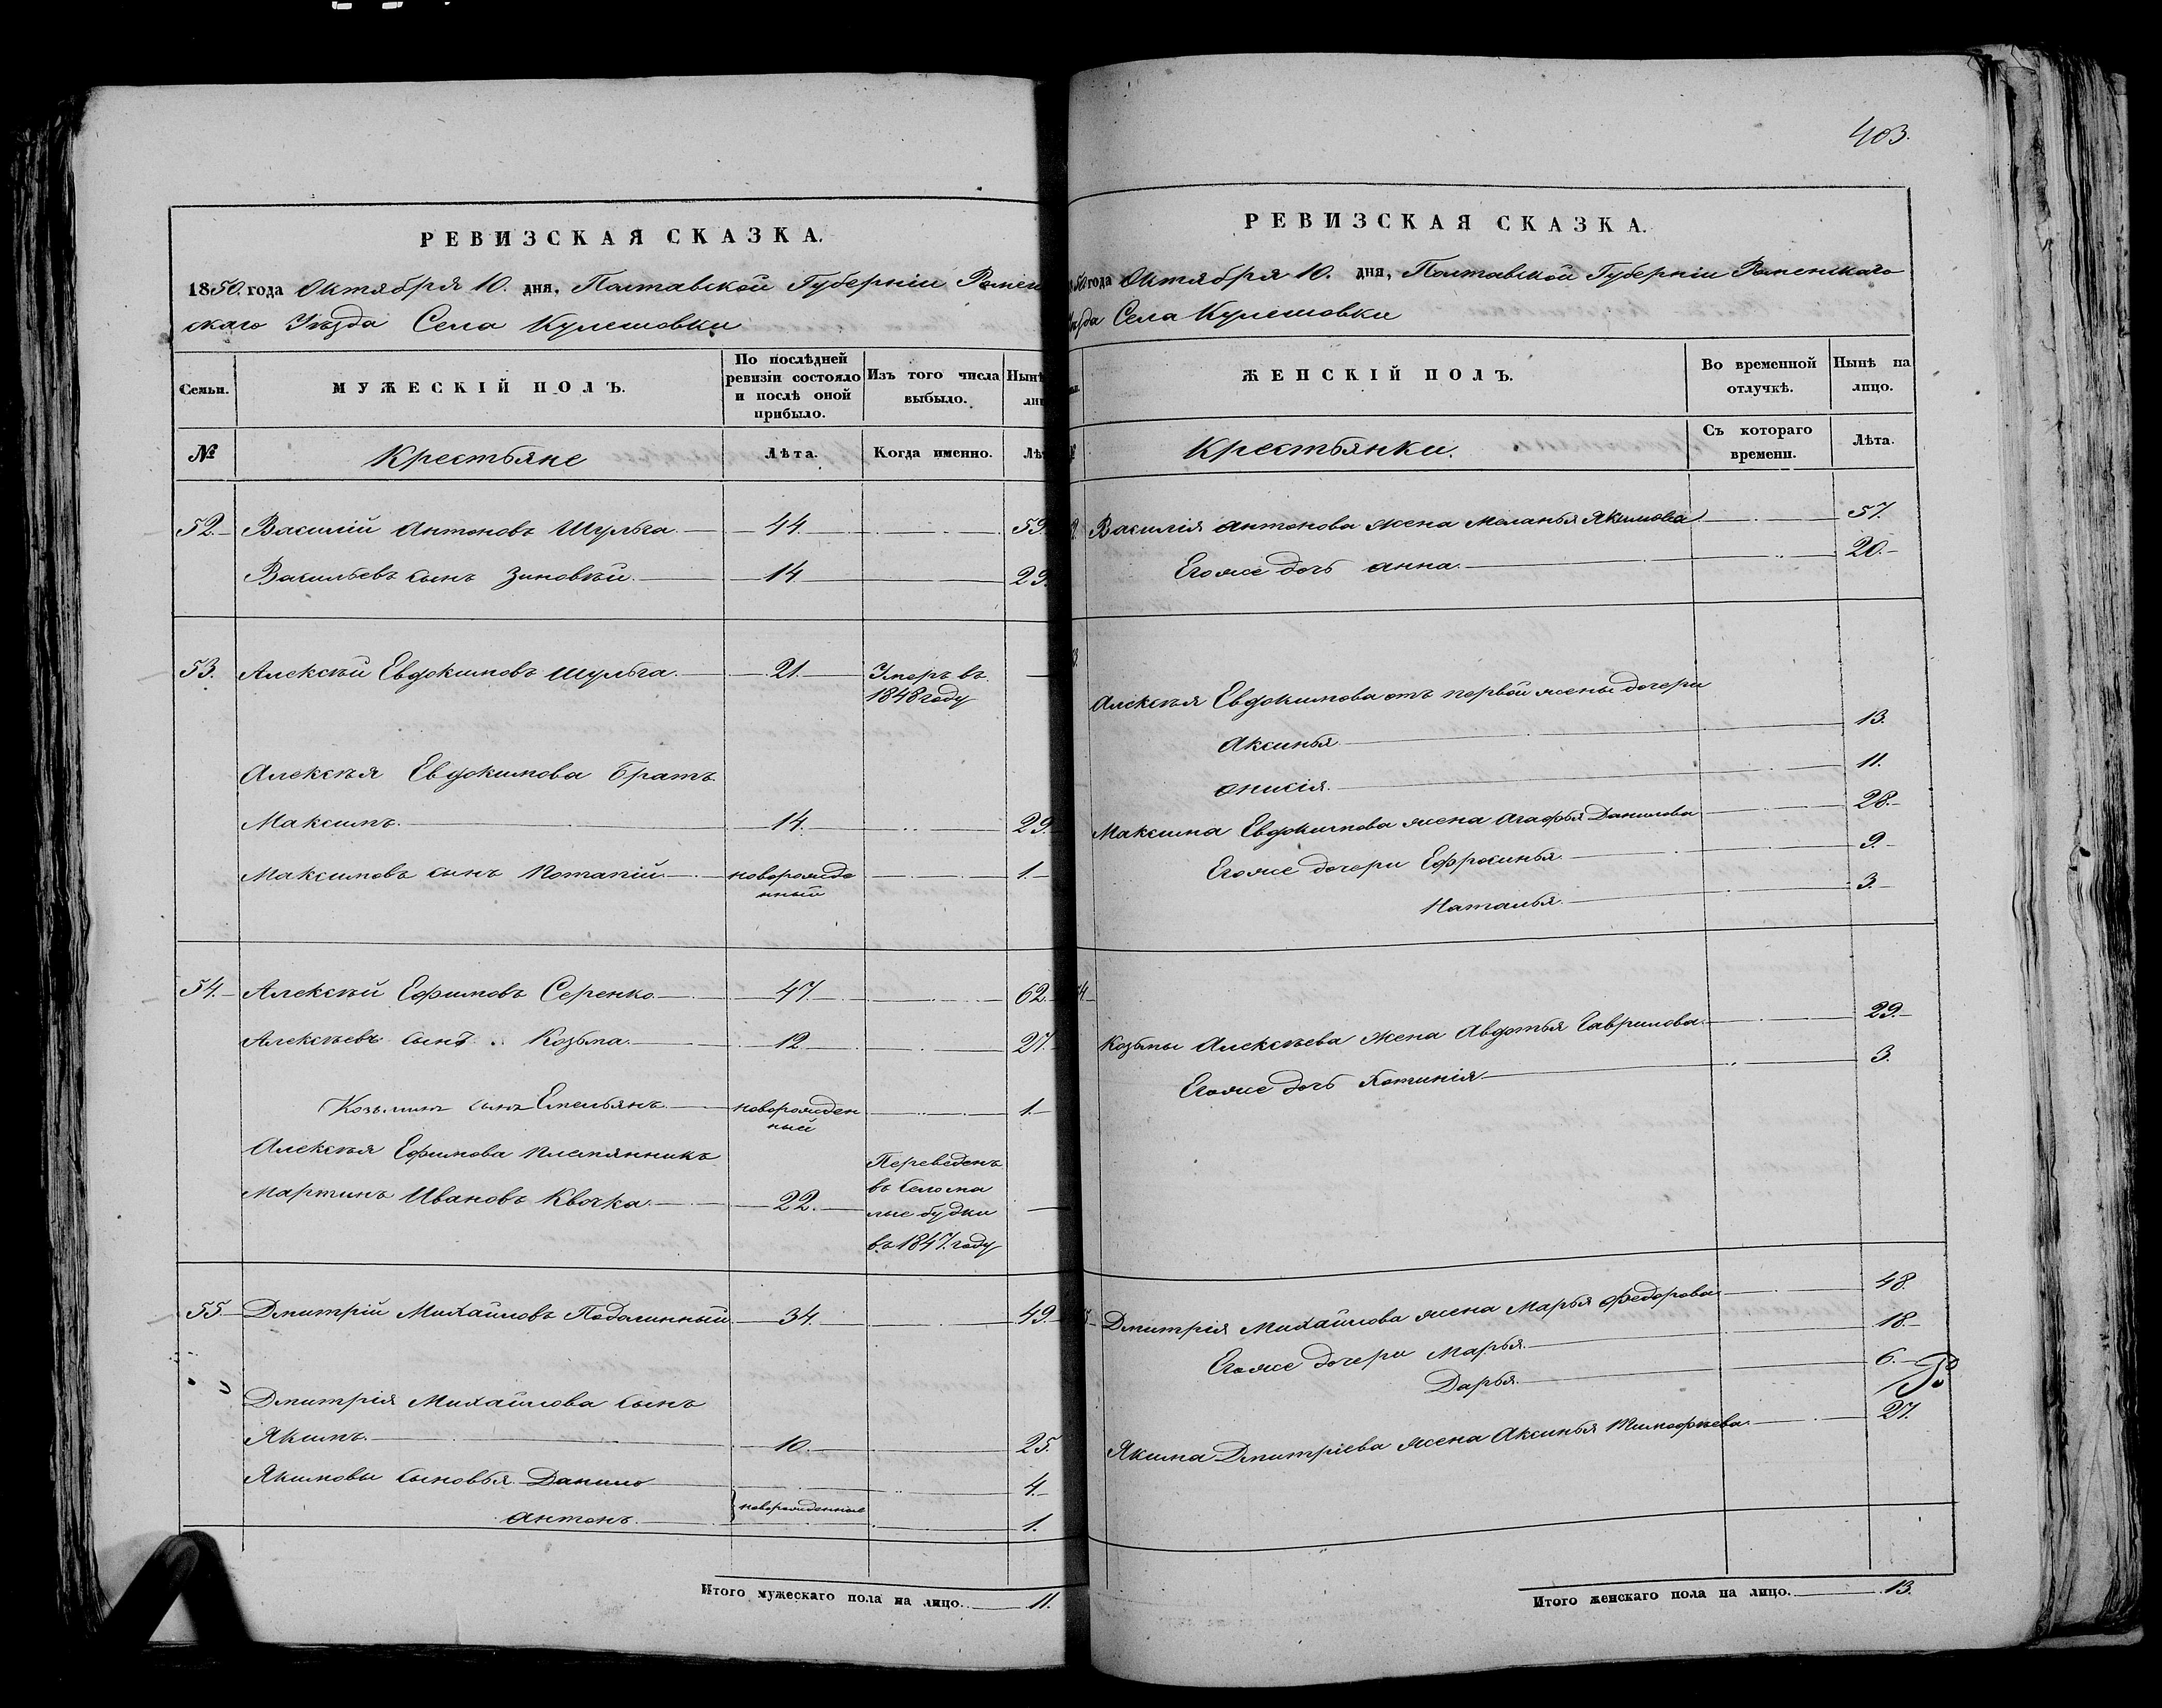 РЕВИЗСКАЯ СКАЗКА.
1850. года Октября 10. дня, Полтавской Губерніи Ромен
скаго Уѣзда Села Кулешовки
Семьи.
МУЖЕСКІЙ ПОЛЪ.
По послѣдней
ревизіи состояло
и послѣ оной
прибыло.
Изъ того числа
выбыло.
Нынѣ
ли
№
Крестьяне
Лѣта.
Когда именно.
Лѣт
52. Василій Антоновъ Шульга 44. 59.
Васильевъ сынъ Зиновѣй. 14 29.
53. Алексѣй Евдокимовъ Шульга. 21. Умеръ въ
1848 году
Алексѣя Евдокимова Братъ
Максимъ. 14. 29
Максимовъ сынъ Потапій. новорожде 1.
нный
54. Алексѣй Ефимовъ Серенко 47. 62.
Алексѣевъ сынъ Козьма. 12. 27.
Козьминъ сынъ Емельянъ. новорожден 1.
ный
Алексѣя Ефимова племянникъ
Мартинъ Ивановъ Квочка. 22. Переведенъ
въ село ма
лые будки
въ 1847. году
55. Дмитрій Михайловъ Подолинный. 34. 49.
Дмитрія Михайлова сынъ
Якимъ. 10. 25.
Якимовы сыновья Данило 4.
новорожденные
Антонъ. 1.
Итого мужескаго пола на лицо. 11.
403.
РЕВИЗСКАЯ СКАЗКА.
50 года Октября 10. дня, Полтавской Губерніи Роменскаго
Уѣзда Села Кулешовки
ЖЕНСКІЙ ПОЛЪ.
Во временной
отлучкѣ.
Нынѣ на
лицо.
Крестьянки.
Съ котораго
времени.
Лѣта.
2. Василія Антонова жена Меланья Якимова 57.
Егоже дочь Анна. 20.
3.
Алексѣя Евдокимова отъ первой жены дочери
Аксинья. 13.
Онисія. 11.
Максима Евдокимова жена Агафья Данилова 28.
Егоже дочери Ефросинья. 9.
Наталья. 3.
4.
Козьмы Алексѣева жена Авдотья Гаврилова. 29.
Егоже дочь Хотинія. 3.
5. Дмитрія Михайлова жена Марья Федорова. 48.
Егоже дочери Марья. 18.
Дарья. 6.
Якима Дмитріева жена Аксинья Тимофѣева. 27.
Итого женскаго пола на лицо. 13.